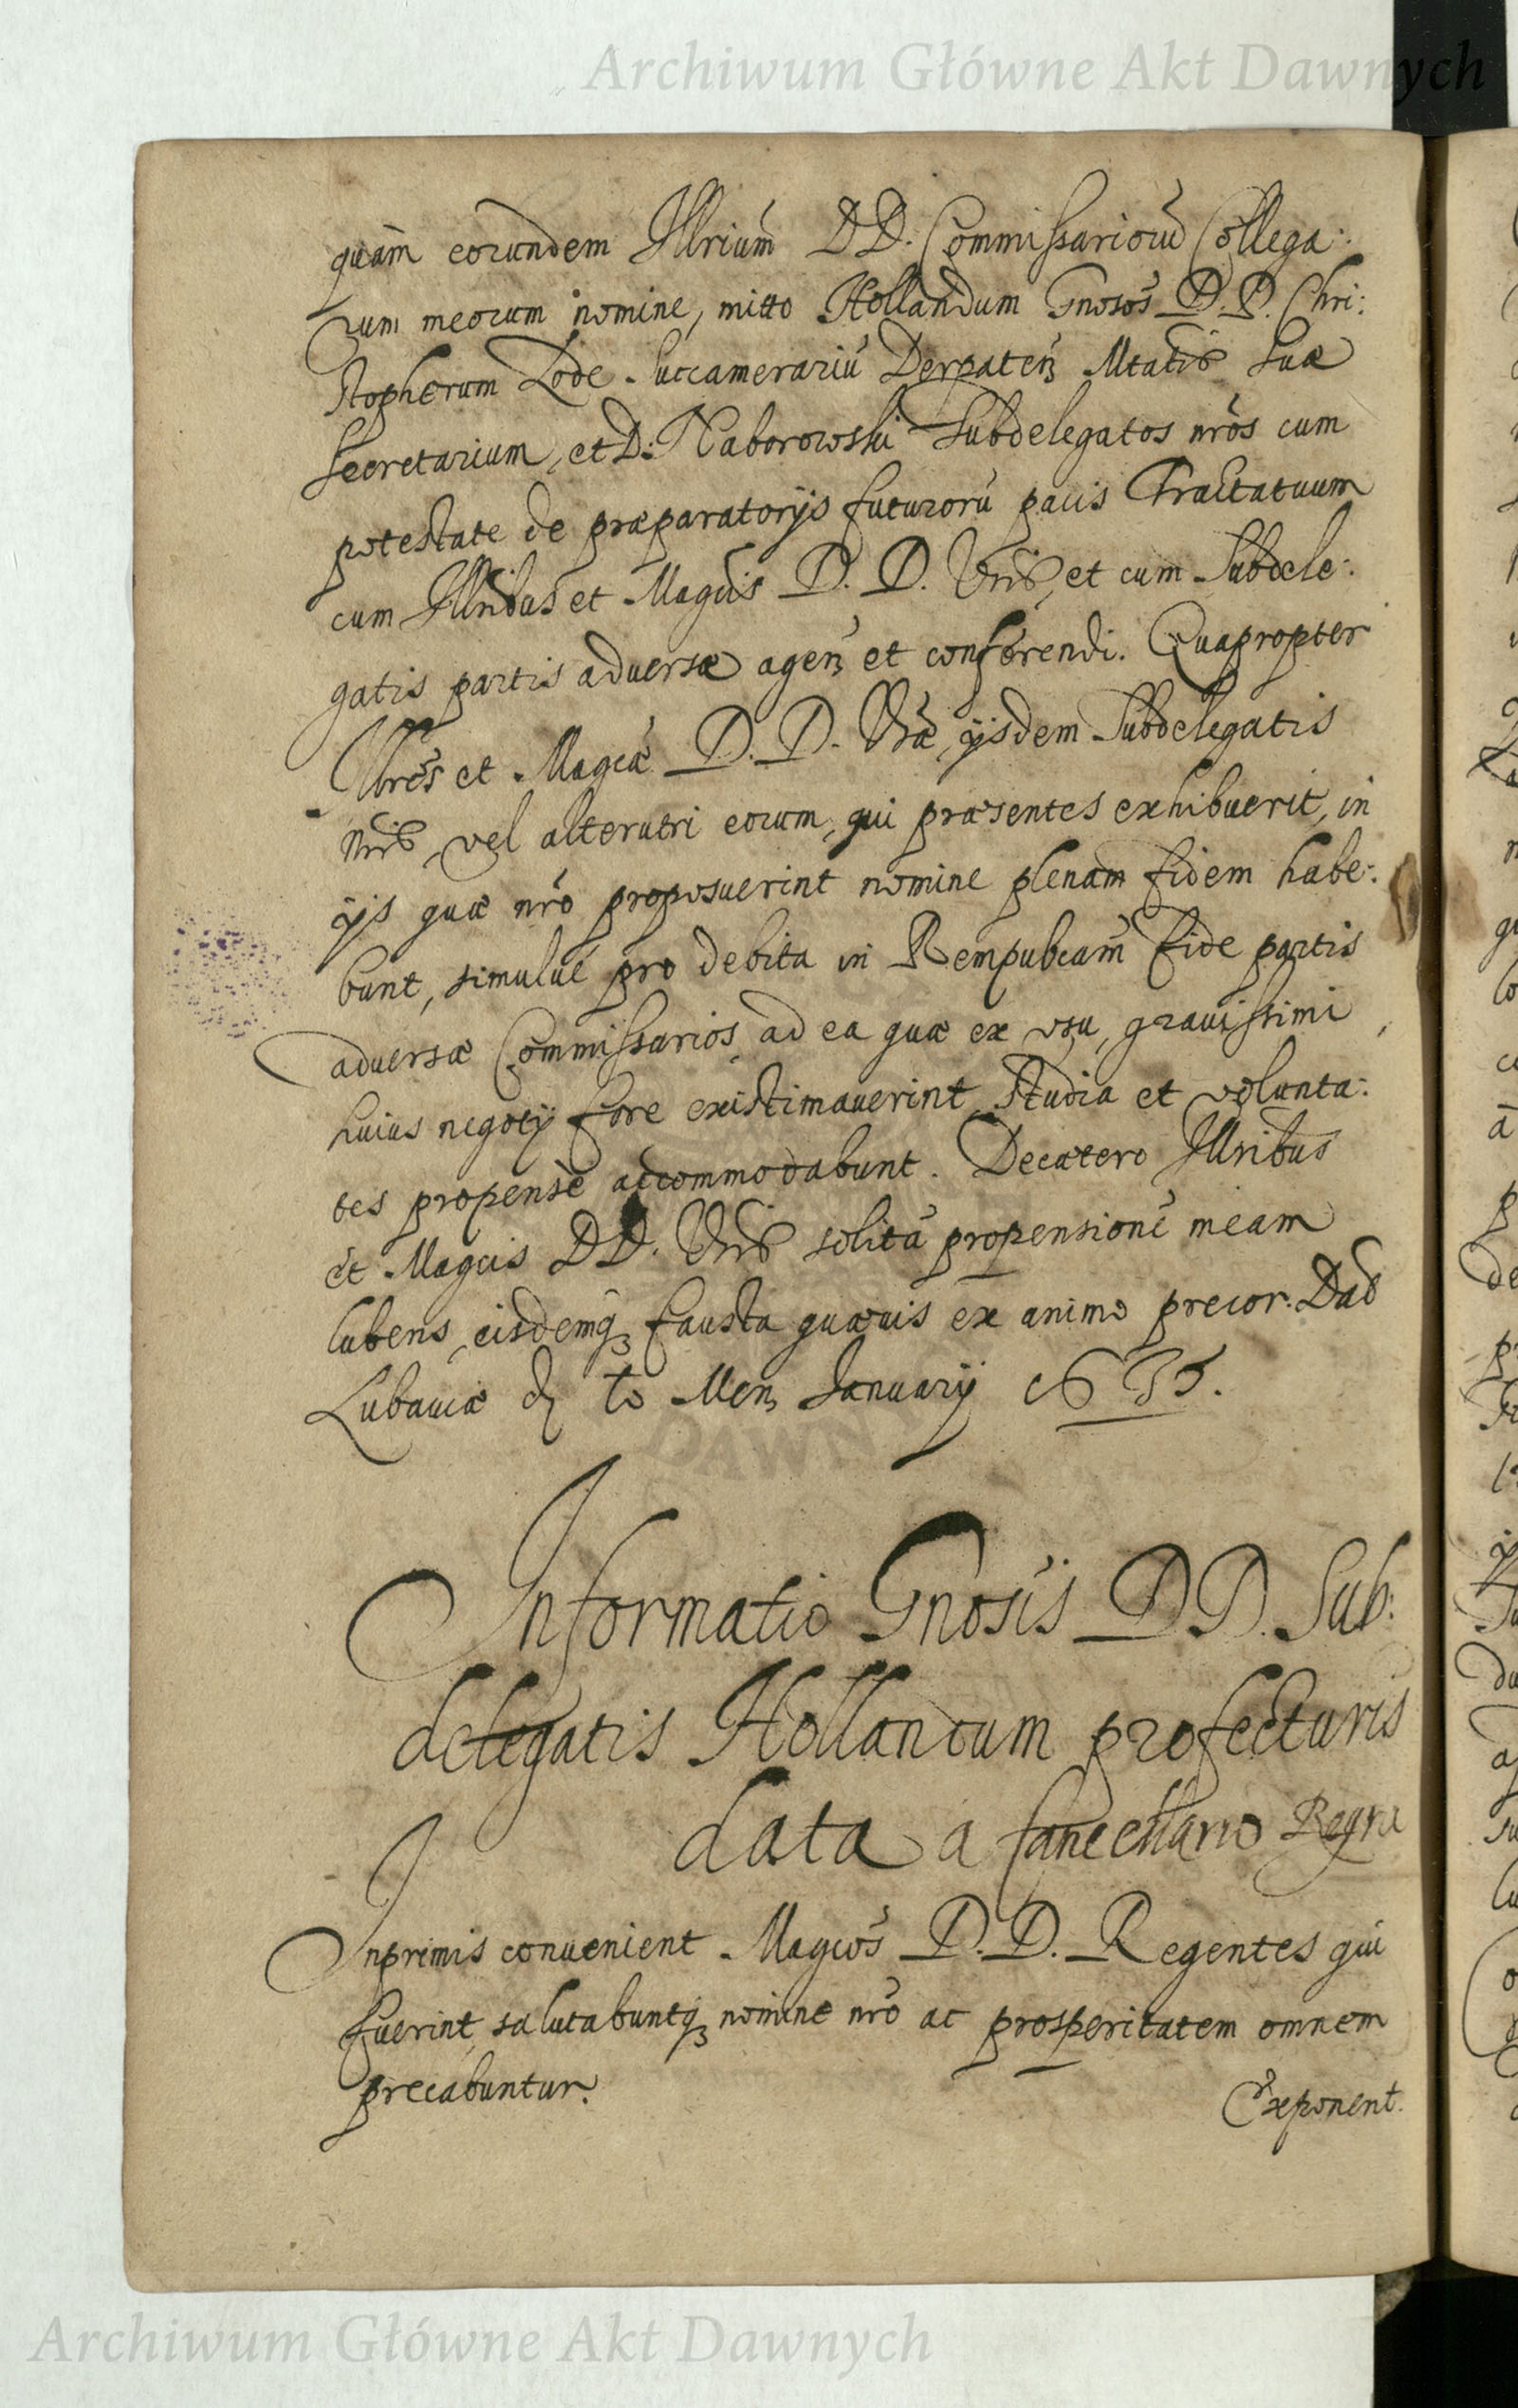 Archiwum Główne Akt Dawnych
quam eorundem Illrium DD. Commissarioru Collega:
rum meorum nomine, mitto Hollandum Gnosos D.D. Chri:
stopherum Lode Succamerariu Derpaten Mtatis Suæ
Secretarium, et D: Naborowski Subdelegatos nros cum
potestate de præparatorijs futuroru pacis Tractatuum
cum Illribus et Magcis D. D. Vris, et cum Subdele:
gatis partis adversæ agen et conferendi. Quapropter
Illres et Magcæ D. D. Vræ ijsdem Subdelegatis
nris, vel alterutri eorum, qui præsentes exhibuerit, in
ijs quæ nro proposuerint nomine plenam fidem habe:
bunt, simulue pro debita in Rempubcam fide partis
adversæ Commissarios ad ea quæ ex usu, gravissimi
huius negotij fore existimaverint, studia et volunta:
tes propensè accommodabunt. Decætero Illribus
et Magcis DD. Vris solita propensione meam
lubens, eisdemq fausta quævis ex animo precor. Dat
Lubaviæ Men Januarij
Informatio Gnosis DD. Sub:
delegatis Hollandum profecturis
data a Cancellario Regni
Inprimis convenient Magcos D.D. Regentes qui
fuerint, salutabuntq nomine nro ac prosperitatem omnem
precabuntur.
Exponent.
DAWN
Archiwum Główne Akt Dawnych